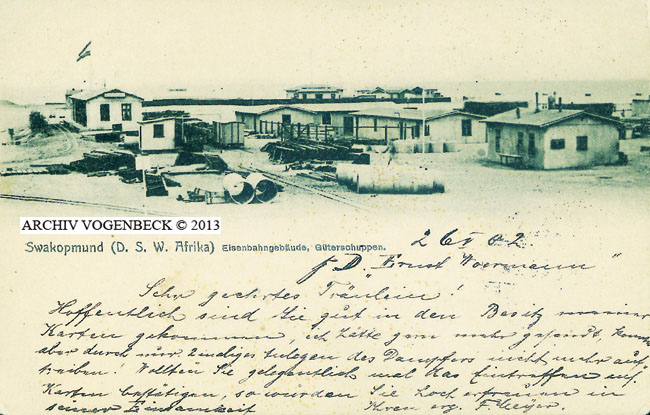 ARCHIV VOGENBECK © 2013
Swakopmund (D. S. W. Afrika) Eisenbahngebäude, Güterschuppen.
26 V 02
p D „Ernst Woermann"
Sehr geehrtes Fräulein!
Hoffentlich sind Sie gut in den Besitz meiner
Karten gekommen, ich hätte gern mehr gesandt, konnte
aber durch nur 2maliges Anlegen des Dampfers nicht mehr auf-
treiben! Wollten Sie gelegentlich mal das Eintreffen auf
Karten bestätigen, so würden Sie hoch erfreuen in
seiner Einsamkeit Ihren erg. F. Meyer